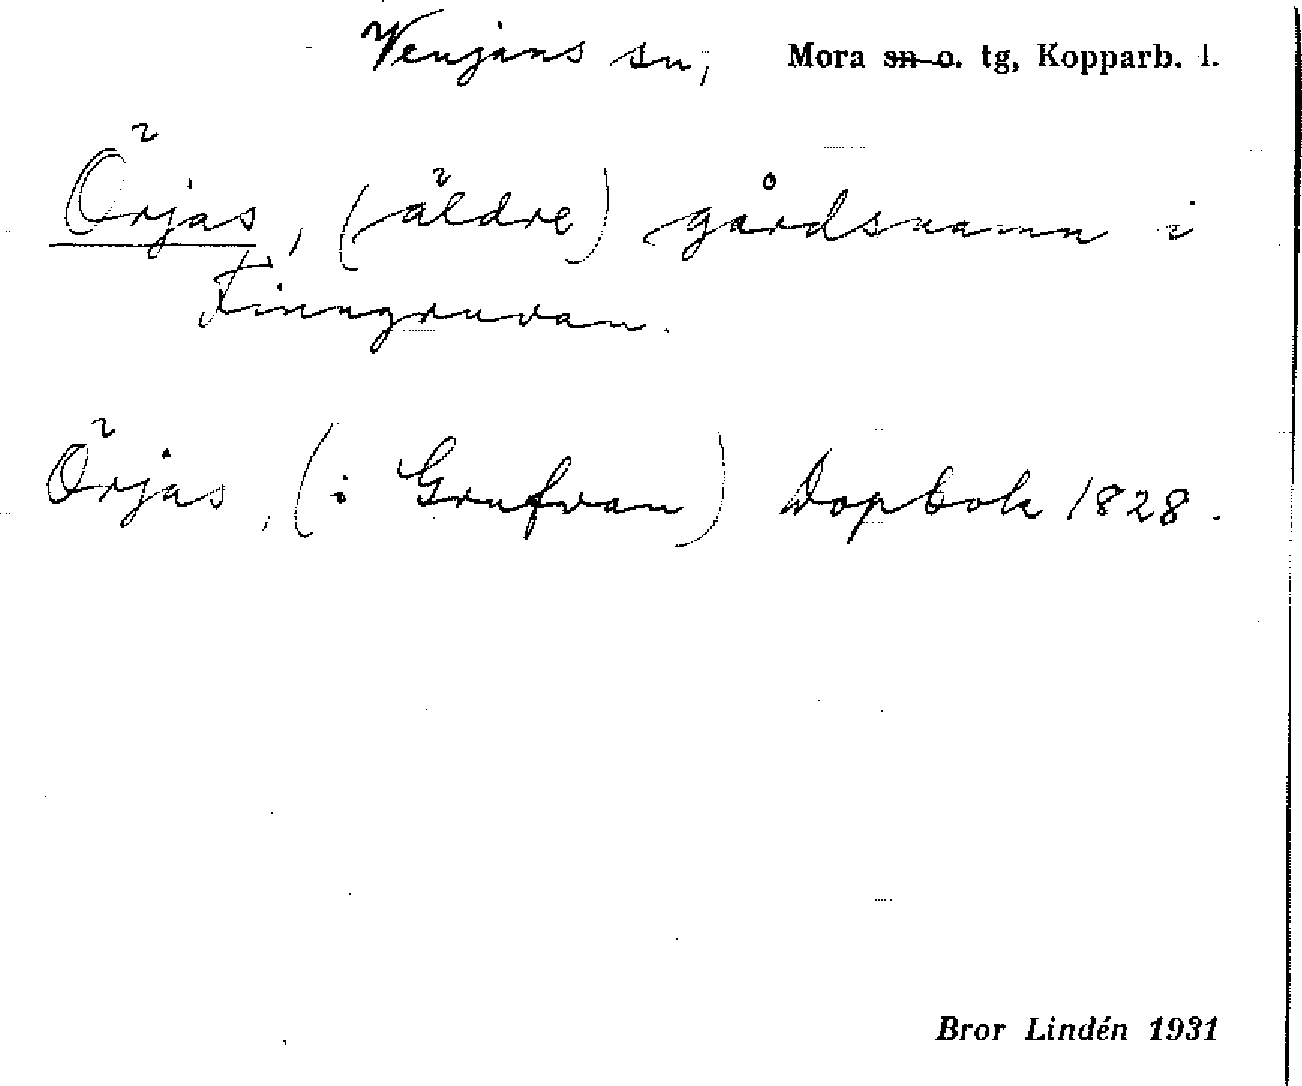 Venjans sn, Mora sn o. tg, Kopparb. l.
Örjas, (äldre) gårdsnamn i
Finngruvan.
Örjas, (i Grufvan) Dopbok 1828.
Bror Lindén 1931